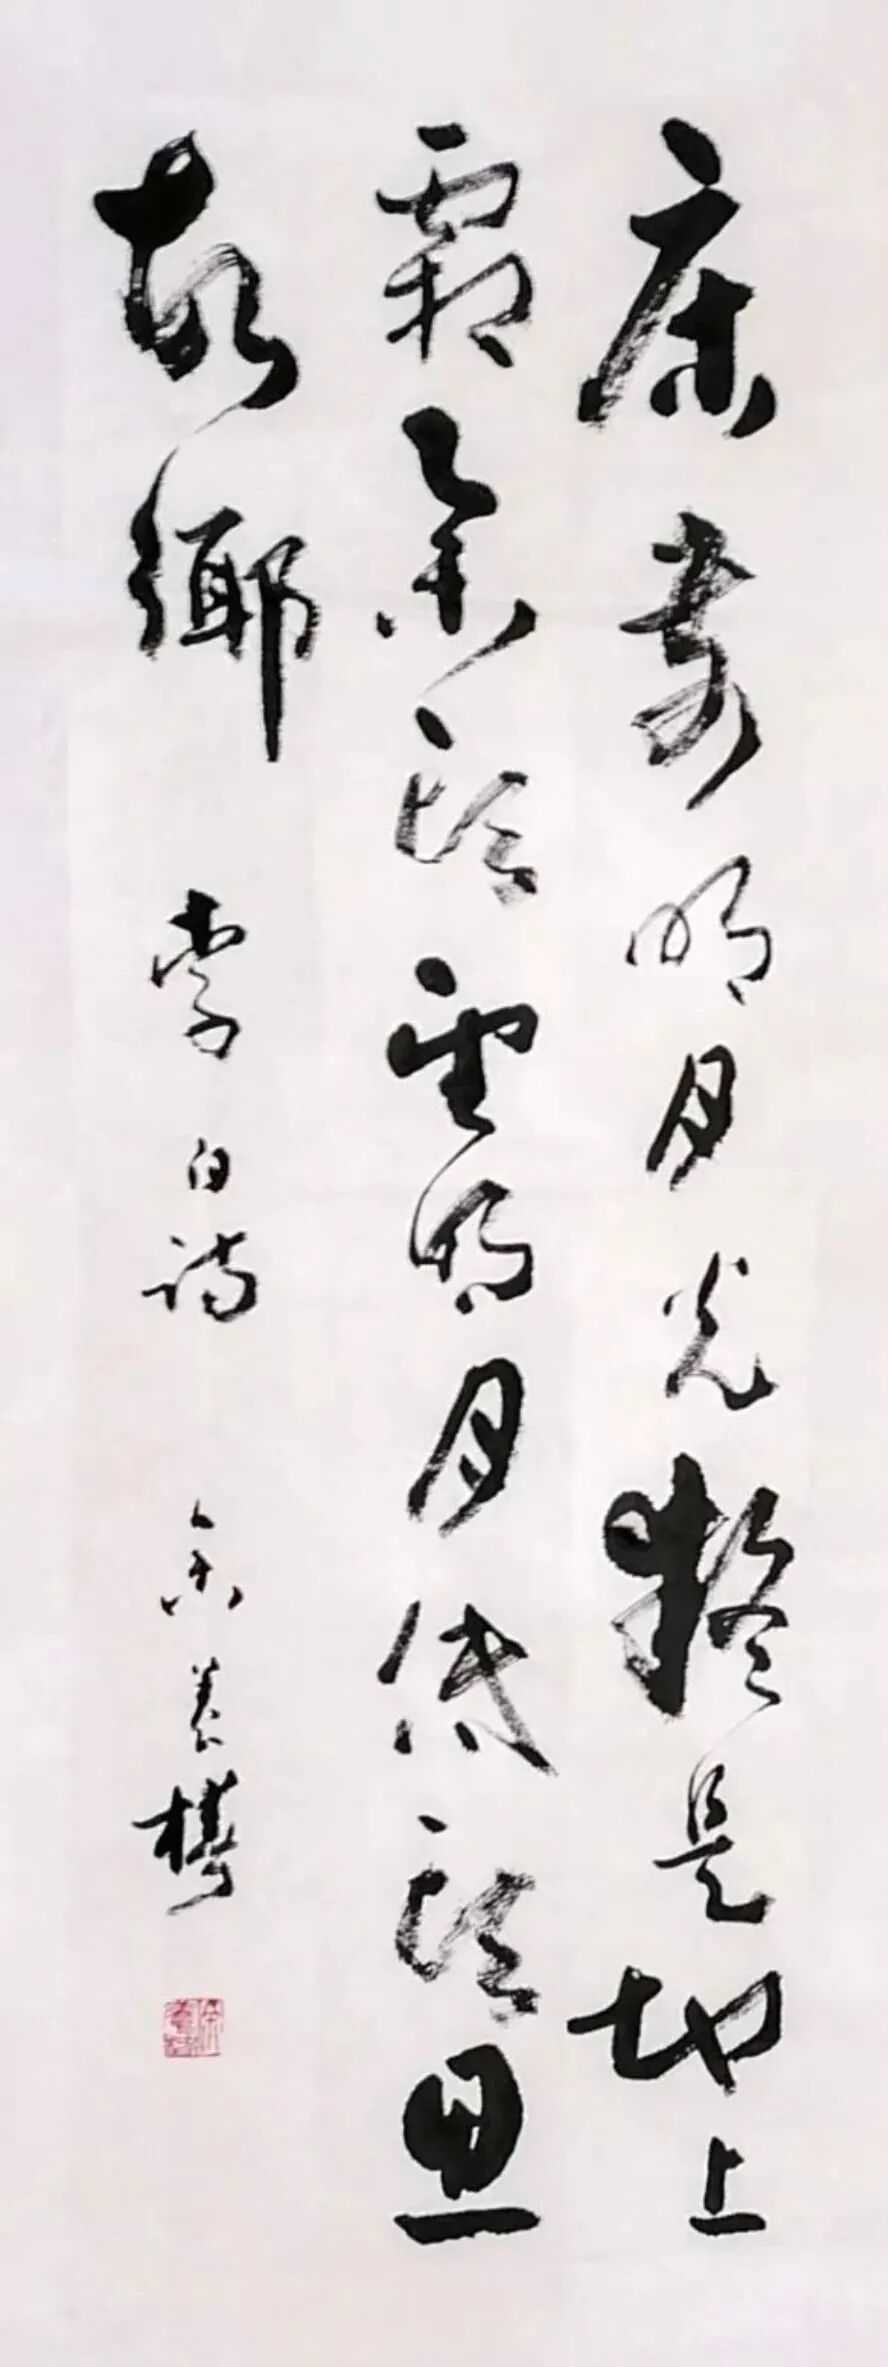 床前明月光疑是地上
霜舉頭望明月低頭思
故鄉 李白詩 余養樗